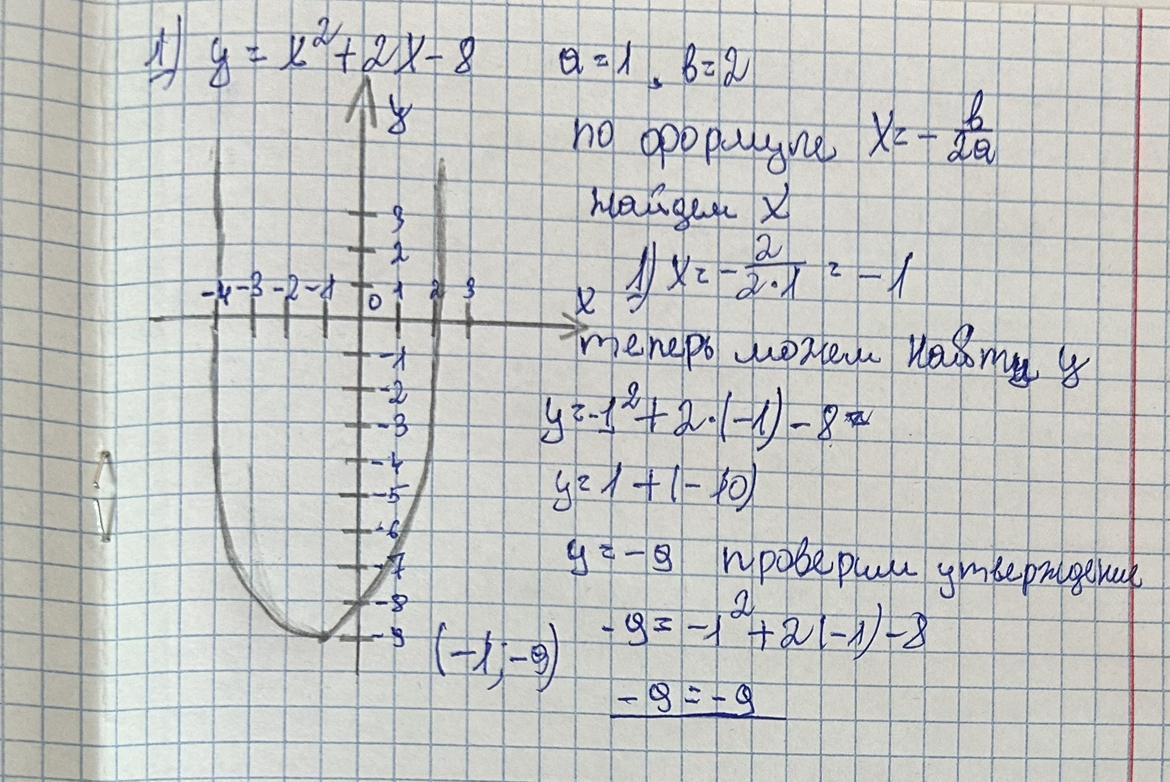 1) y = x²+2x-8
a=1, b=2
y
по формуле x = - b/2a
найдем x
3
2
1) x = - 2/2·1 = -1
-4 -3 -2 -1 0 1 2 3 x
теперь можем найти y
-1
-2
-3
-4
-5
-6
-7
-8
-9
y=-1²+2·(-1)-8=
y=1+(-10)
y=-9 проверим утверждение
-9=-1²+2(-1)-8
(-1;-9)
-9=-9